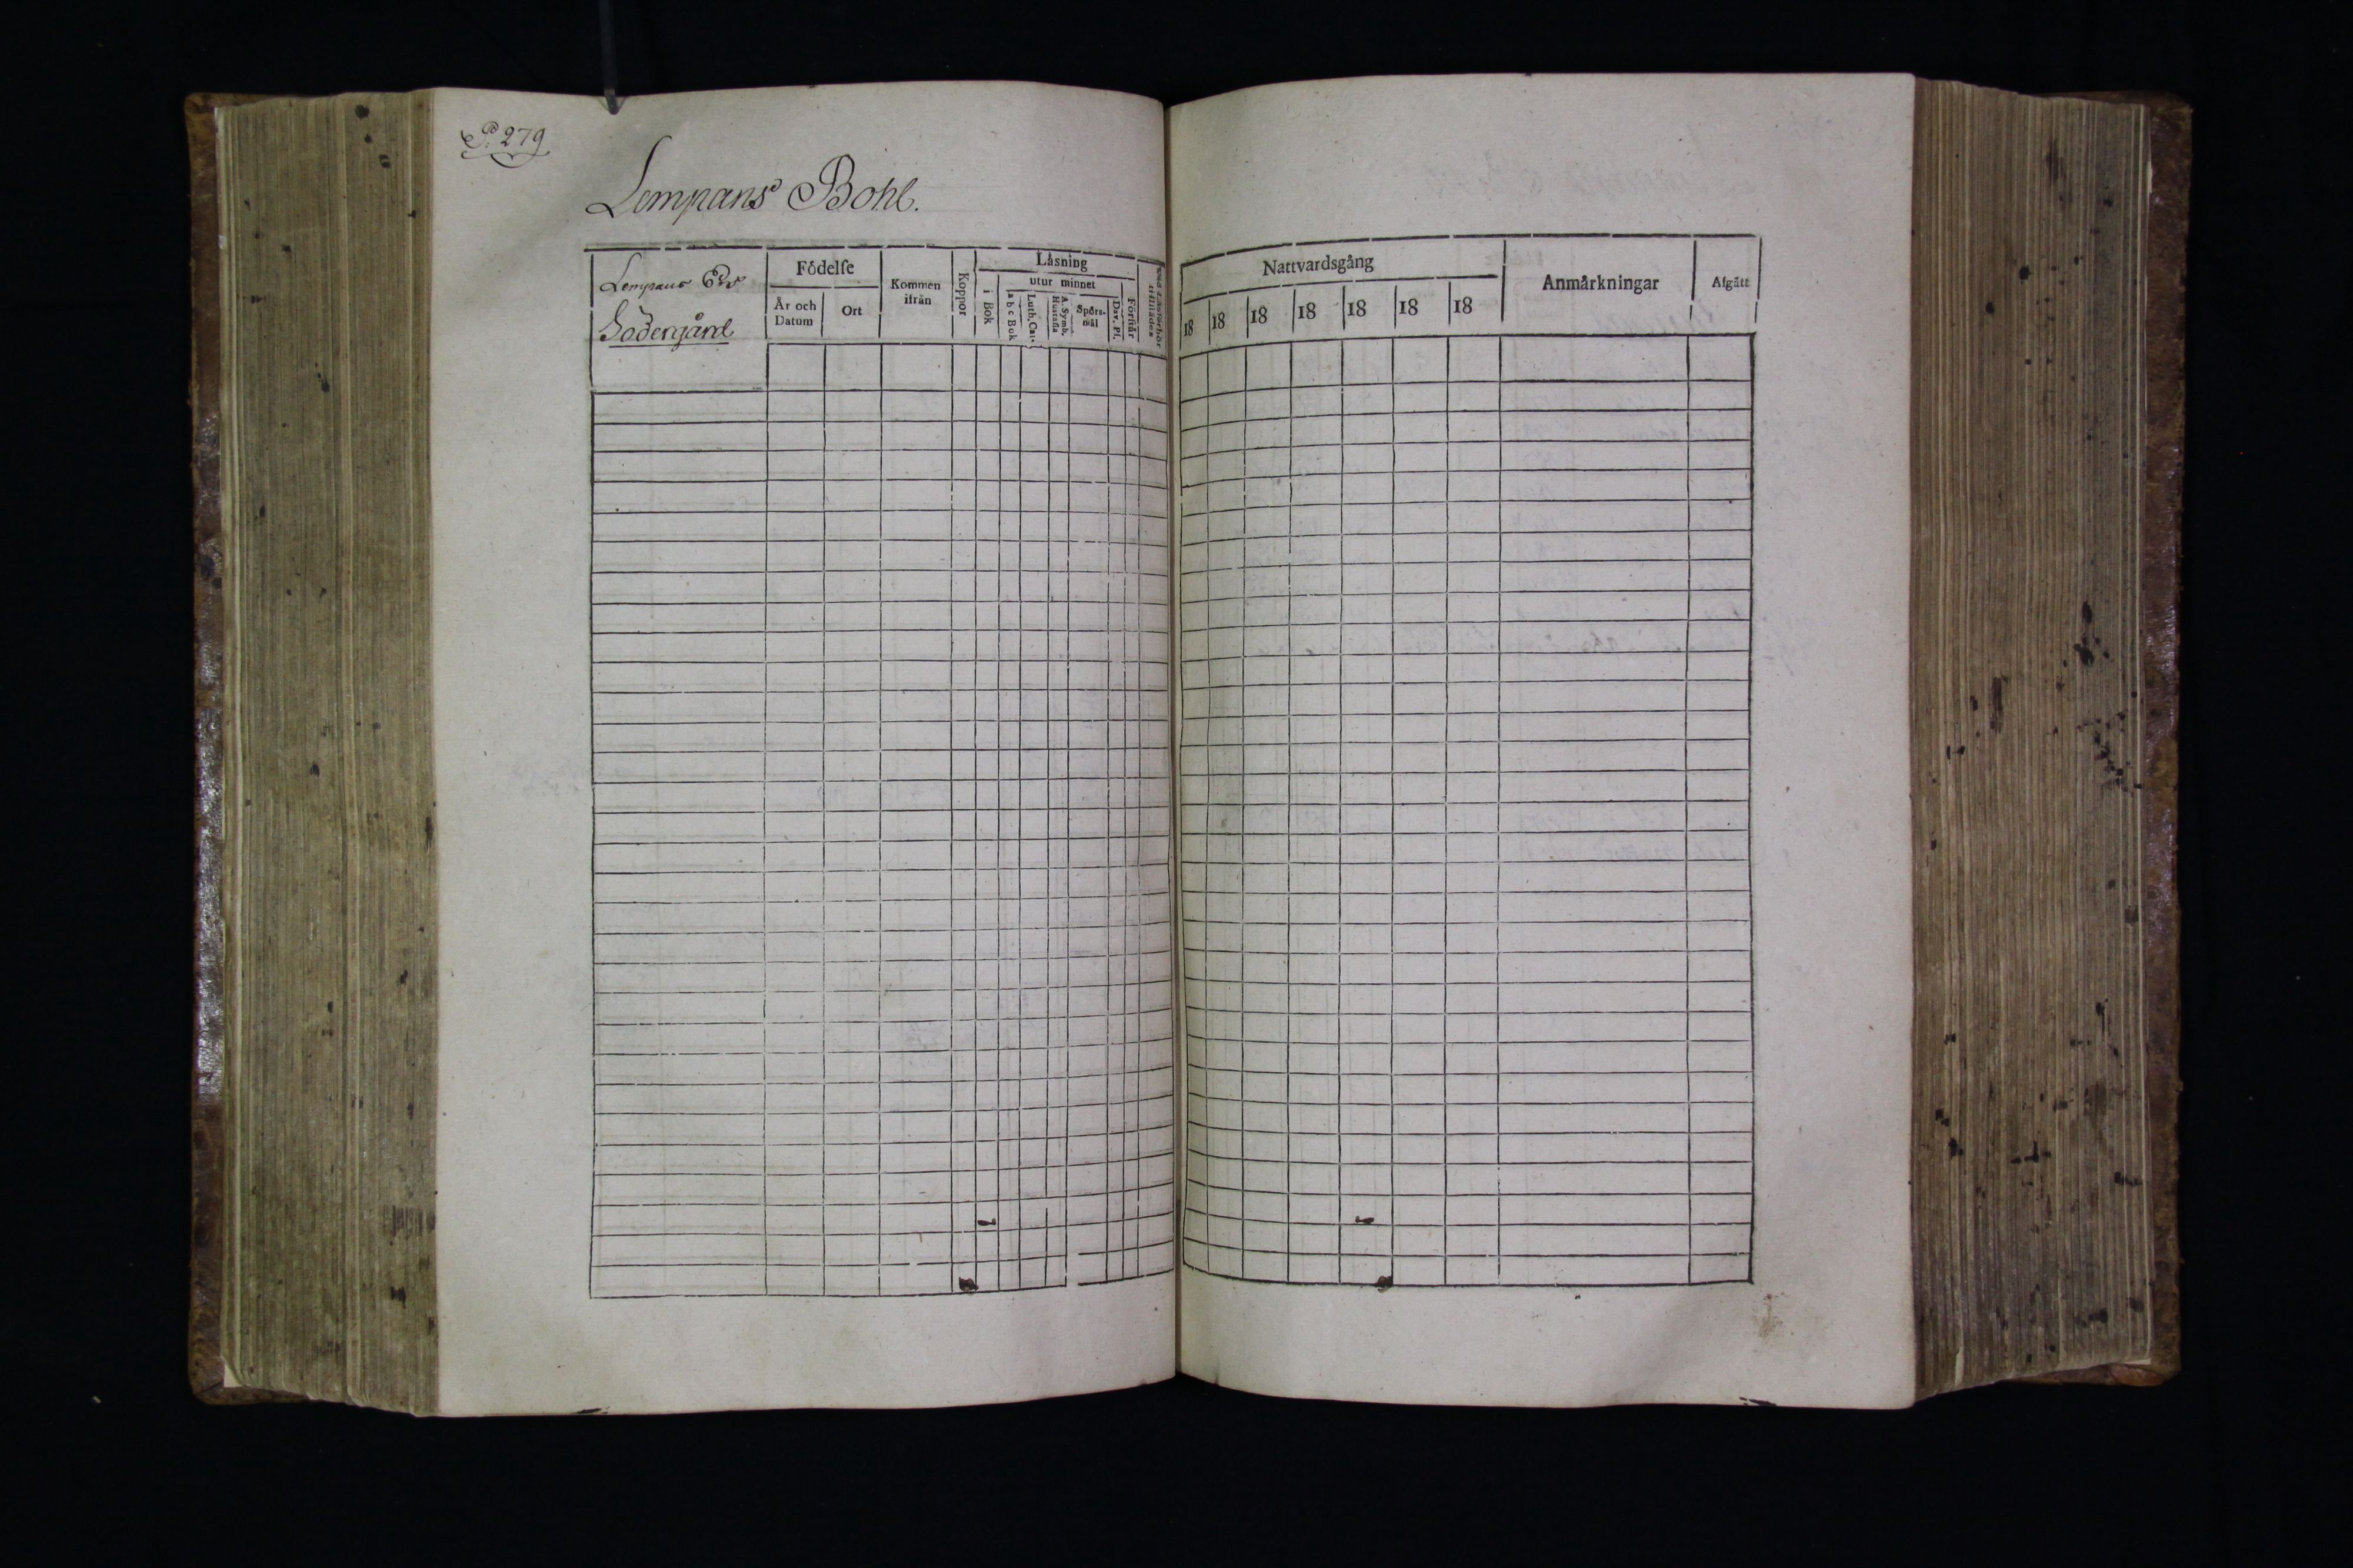 P. 279
Lempans Bohl.
Lempans
Södergård
Födelse
År och Datum
Ort
Kommen ifrån
Koppor
Läsning
i Bok
utur minnet
a b c Bok
Luth. Cat.
A. Symb. Hustafla
Spörsmål
Dav. Ps.
Förstår
Nattvardsgång
18 18 18 18 18 18 18
Anmärkningar
Afgått